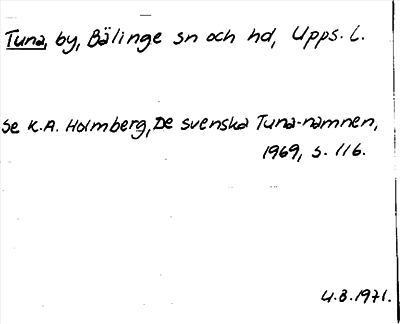 Tuna, by, Bälinge sn och hd, Upps. L.
Se K.A. Holmberg, De svenska Tuna-namnen,
1969, s. 116.
4.8.1971.